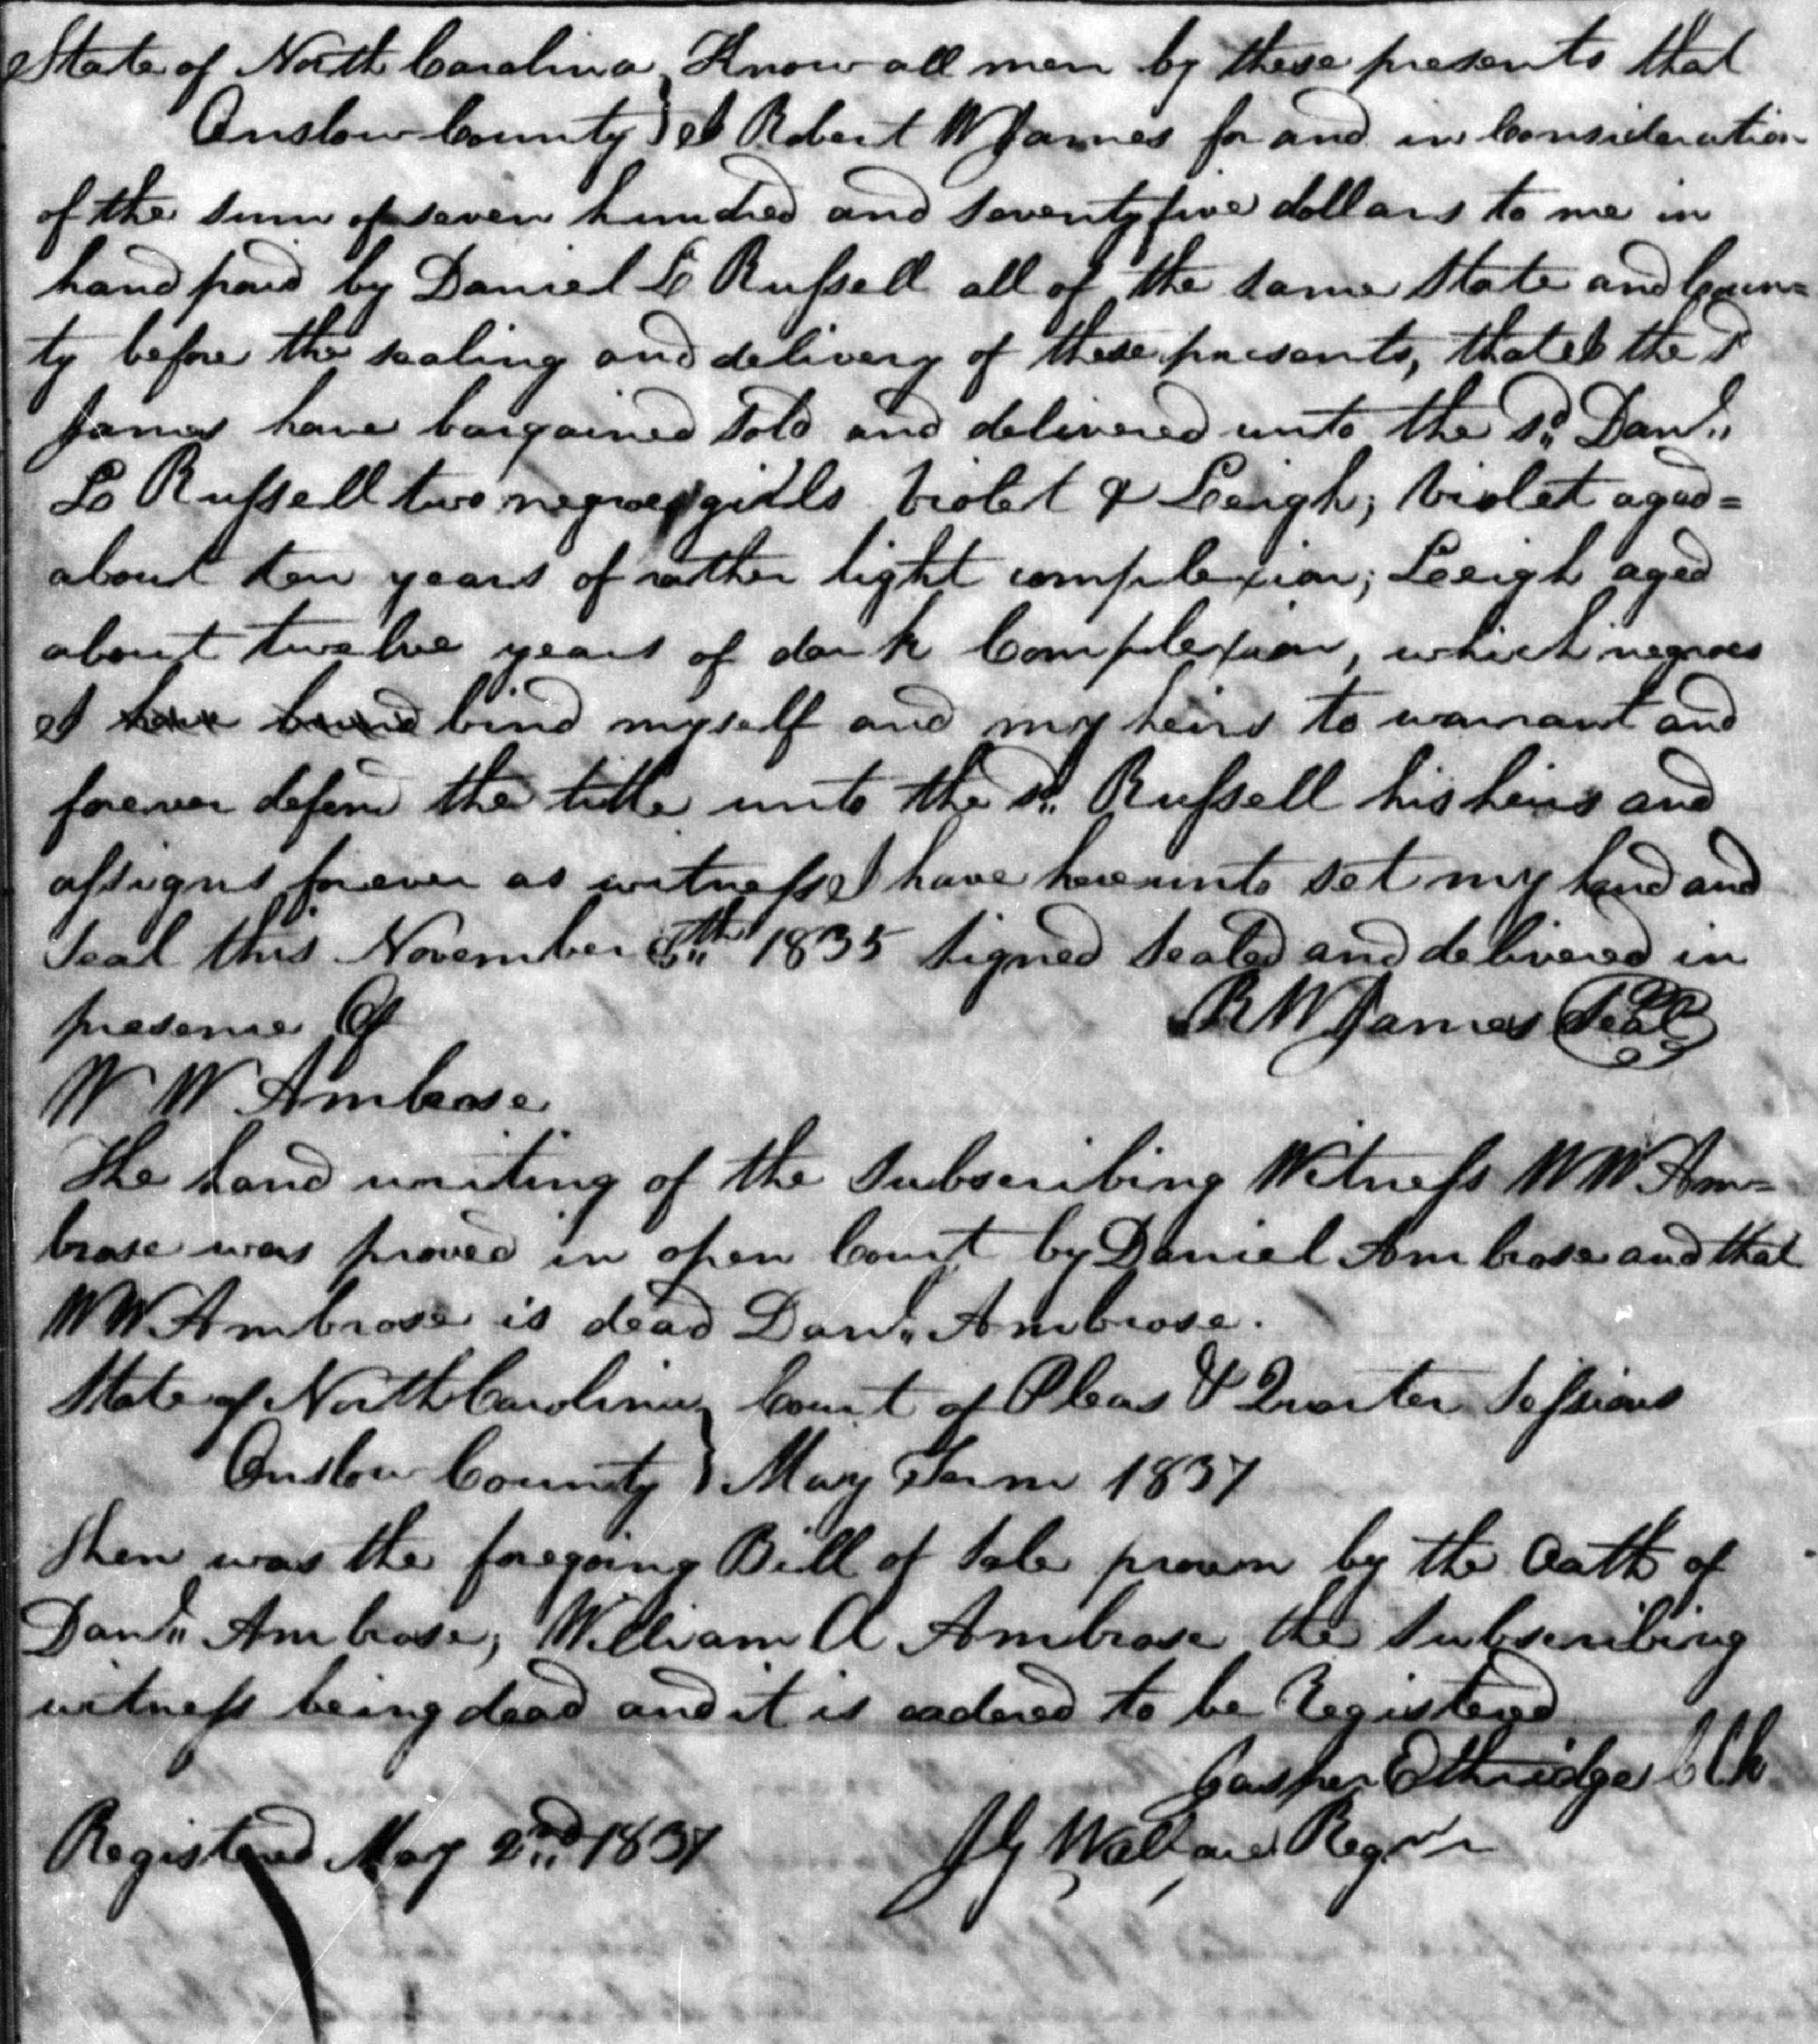 State of North Carolina } Know all men by these presents that
Onslow County } I Robert W James for and in Consideration
of the sum of seven hundred and seventy five dollars to me in
hand paid by Daniel L Russell all of the same State and Coun=
ty before the sealing and delivery of these presents, that I the sd
James have bargained sold and delivered unto the sd. Danl.
L Russell two negroes girls Violet & Leigh; Violet aged=
about ten years of rather light complexion; Leeigh aged
about twelve years of dark Complexion, which negroes
I have bound bind myself and my heirs to warrant and
forever defend the title unto the sd. Russell his heirs and
assigns forever as witness I have hereunto set my hand and
seal this November 5th 1835 signed sealed and delivered in
presence Of R W James Seal
W W Ambrose
The hand writing of the Subscribing Witness W W Am=
brose was proved in open Court by Daniel Ambrose and that
W W Ambrose is dead Danl. Ambrose.
State of North Carolina } Court of Pleas & Quarter Sessions
Onslow County } May Term 1837
Then was the foregoing Bill of Sale proven by the Oath of
Danl. Ambrose, William A Ambrose the Subscribing
witness being dead and it is ordered to be Registered
Jasper Ethridge Clk
Registered May 2nd 1837 Wallace Regr